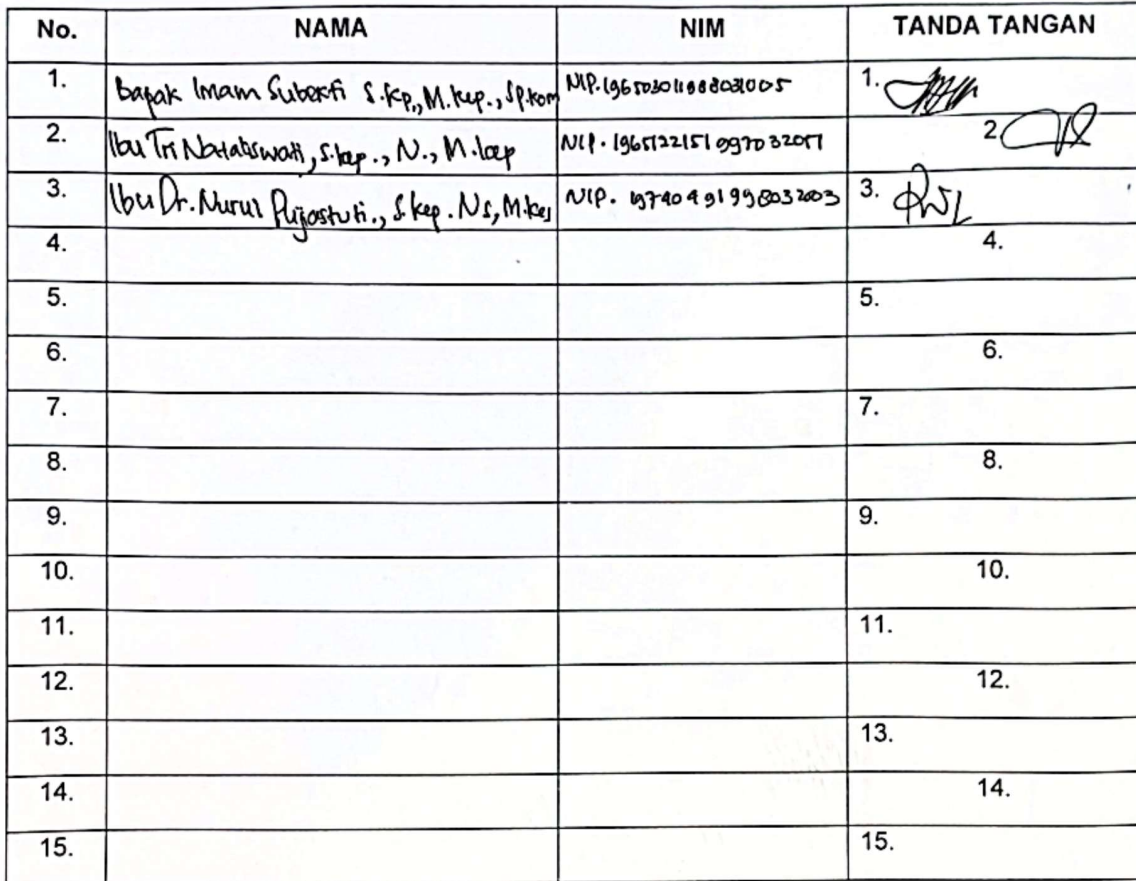 No. NAMA NIM TANDA TANGAN
1. Bapak Imam Subekti S.Kp., M.Kep., Sp.Kom NIP. 196503011988031005 1.
2. Ibu Tri Nataliswati, S.kep., N., M.kep NIP. 196512215199703 2
3. Ibu Dr. Nurul Pujiastuti., S.kep. Ns, M.kes NIP. 1974049199803 2003 3.
4. 4.
5. 5.
6. 6.
7. 7.
8. 8.
9. 9.
10. 10.
11. 11.
12. 12.
13. 13.
14. 14.
15. 15.